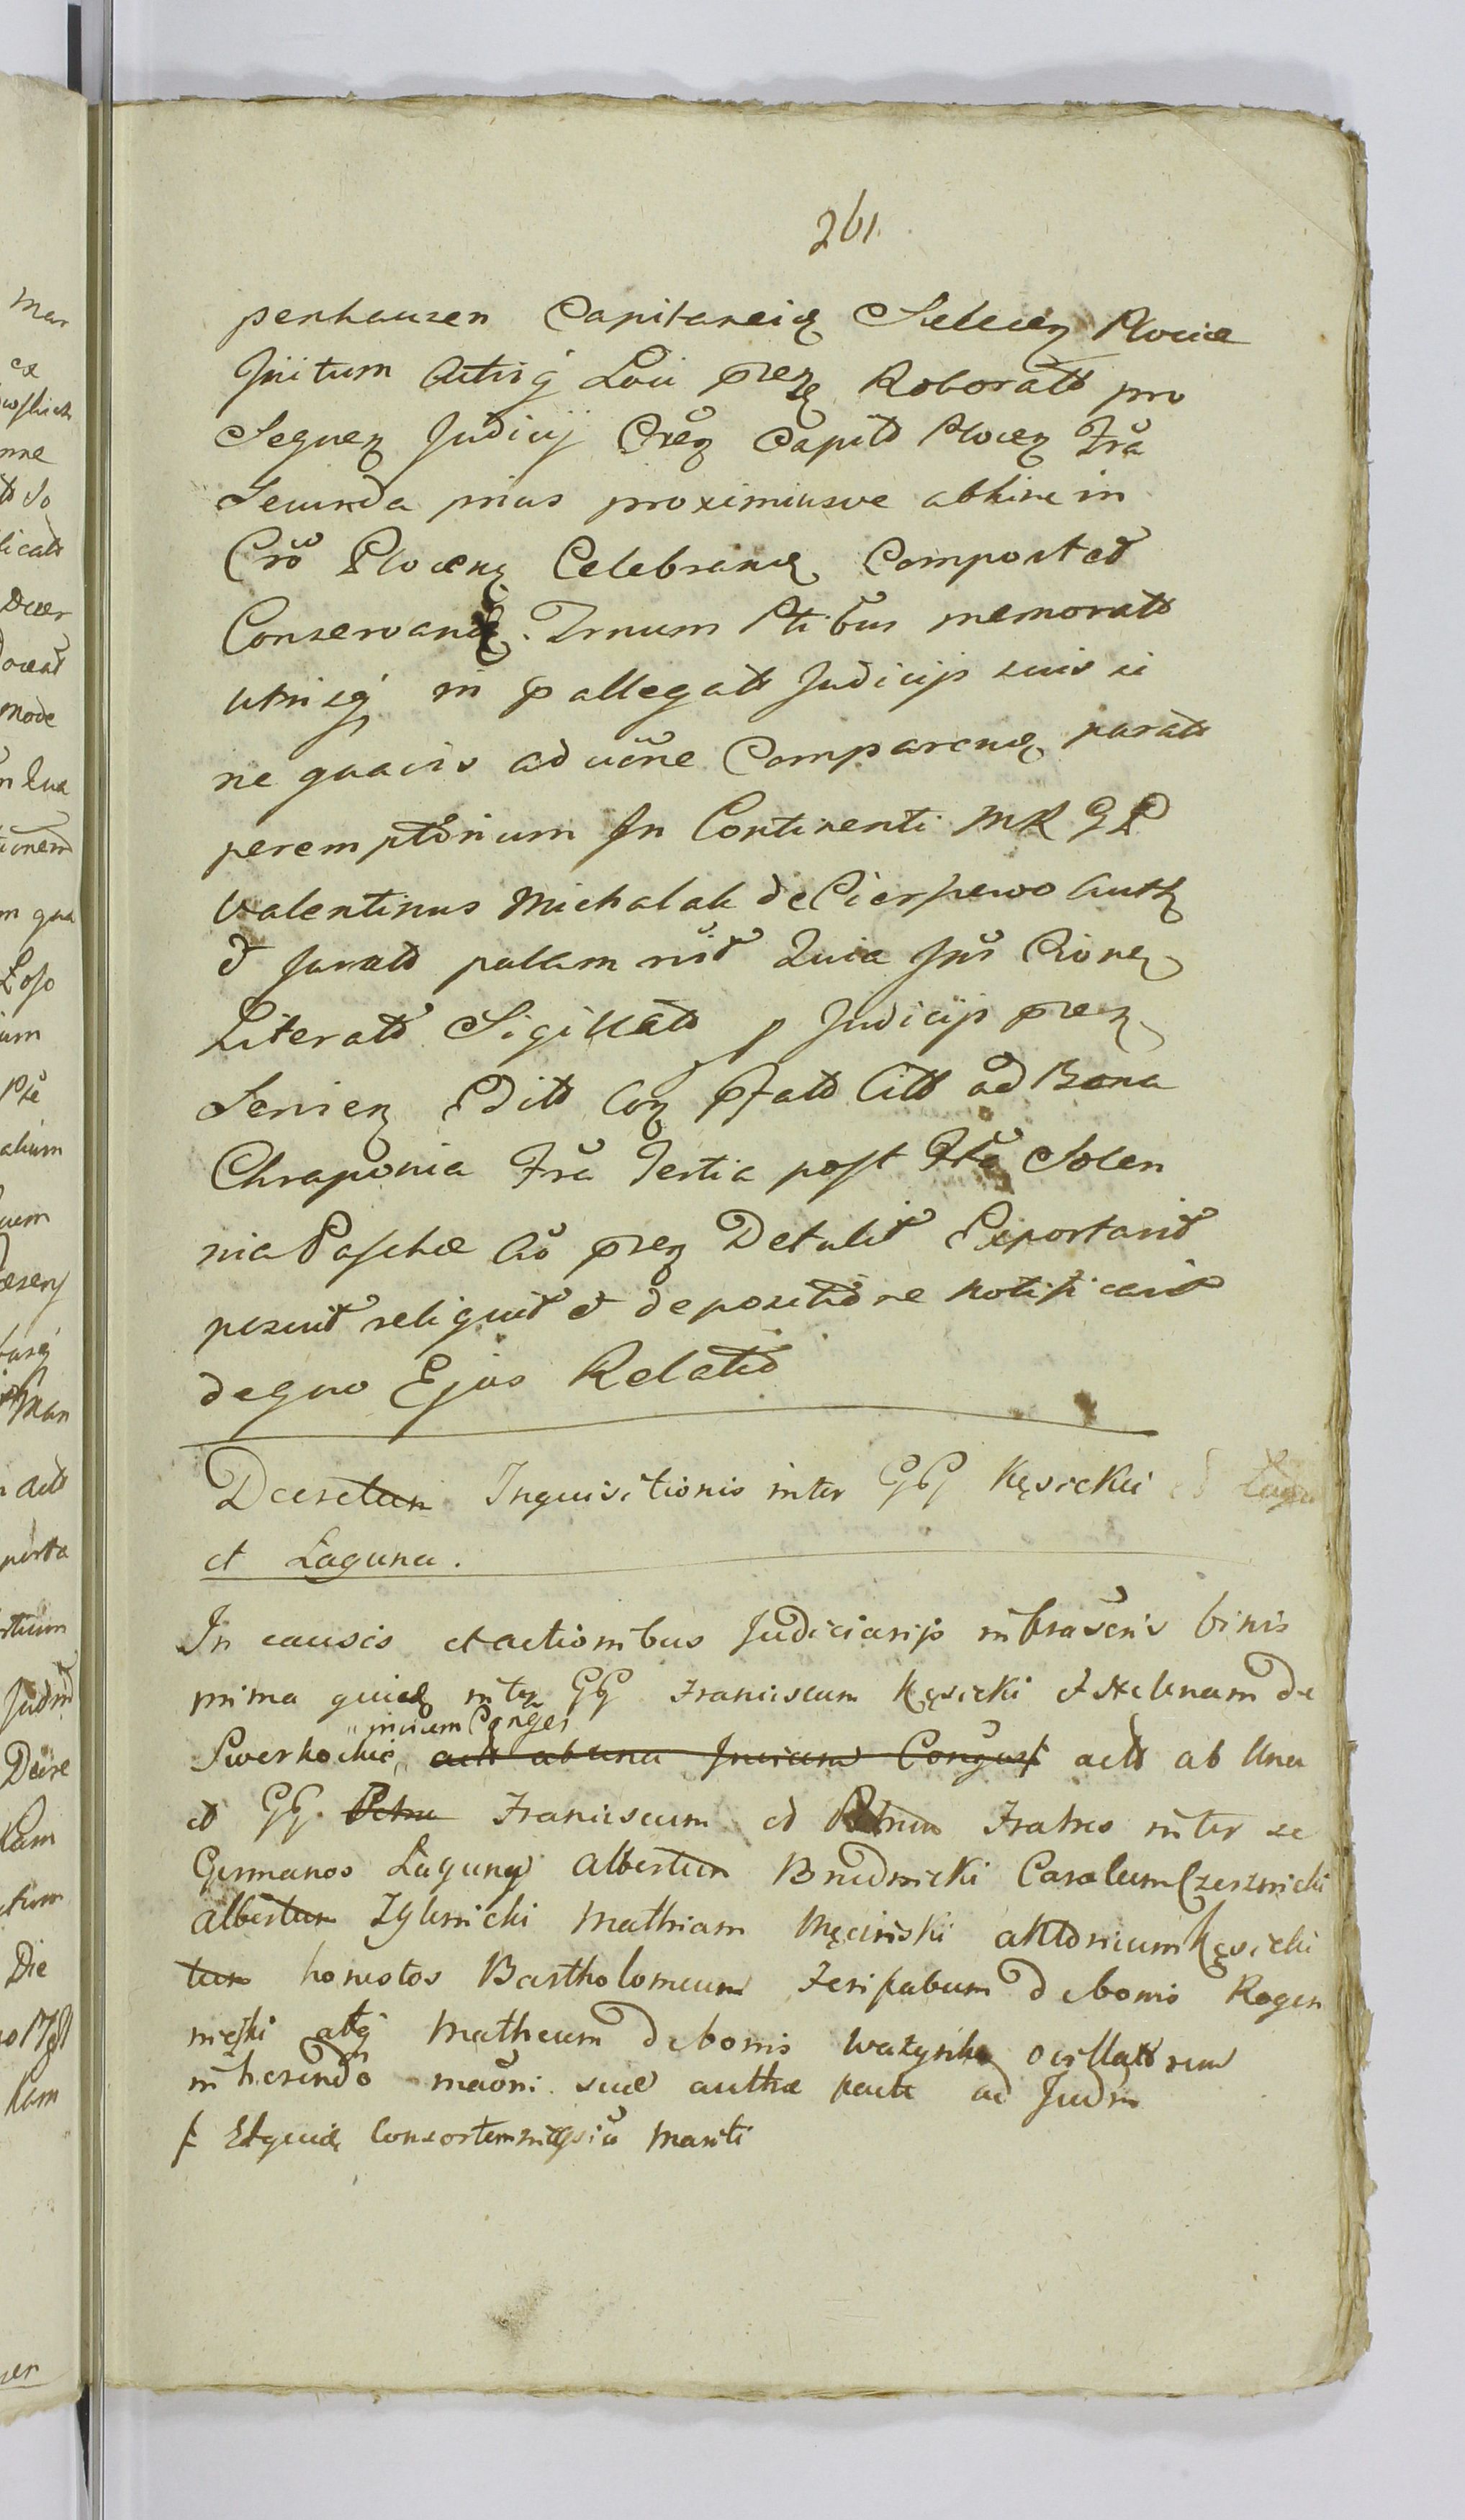 261.
penhausen Capitaneię Sieluń Plociæ
Initum Actisq́ Loci præz Roborato pro
Seqnen Judicij Cren Capitl Plocen Fra
Secunda prius proximiusve abhinc in
Cro Plocen Celebrand Comportet
Conservand. Trnum Ptibus memorat
utrisq́ in p allegatt Judicijs suis si
ne quavis advõne Comparend parat
peremptorium In Continenti M R G P
Valentinus Michalak de Cierszewo Auth
et Jurato palam rišt Quia Ipse Cione
Literatt Sigillatt p Judicijs præz
Servien Editt Con pfatt Citt ad Bona
Chraponia Fra Tertia post Fta Solen
nia Paschæ Ao præz Detulit Exportavit
posuit reliquit et depositione notificavit
dequo Ejus Relatio
Decretum Inquisitionis inter GG Kęsickii et Lagu
et Laguna.
In causis et actionibus Judiciarijs infrascris binis
prima quidę inter GG Franciscum Kęsicki et Helenam de
invicem Conges
Swerkockie, actt ab una Invicem Congust actt ab Una
et GG. Petru Franciscum et Petrum Fratres inter se
Germanos Laguny Albertum Brudnicki Carolum Czerznicki
Albertum Zglinicki Mathiam Męcinski aKtonium Kęsicki
tum honestos Bartholomeum Feriskabum de bonis Rogen
nieżki atq́ Matheum de bonis Ważynka ocillatorem
inherendo maõni suæ authæ parte ad Judm
f Etquidę Consortem in assia Mariti